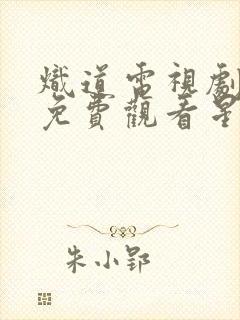 熾道電視劇
免費觀看星
朱小郢